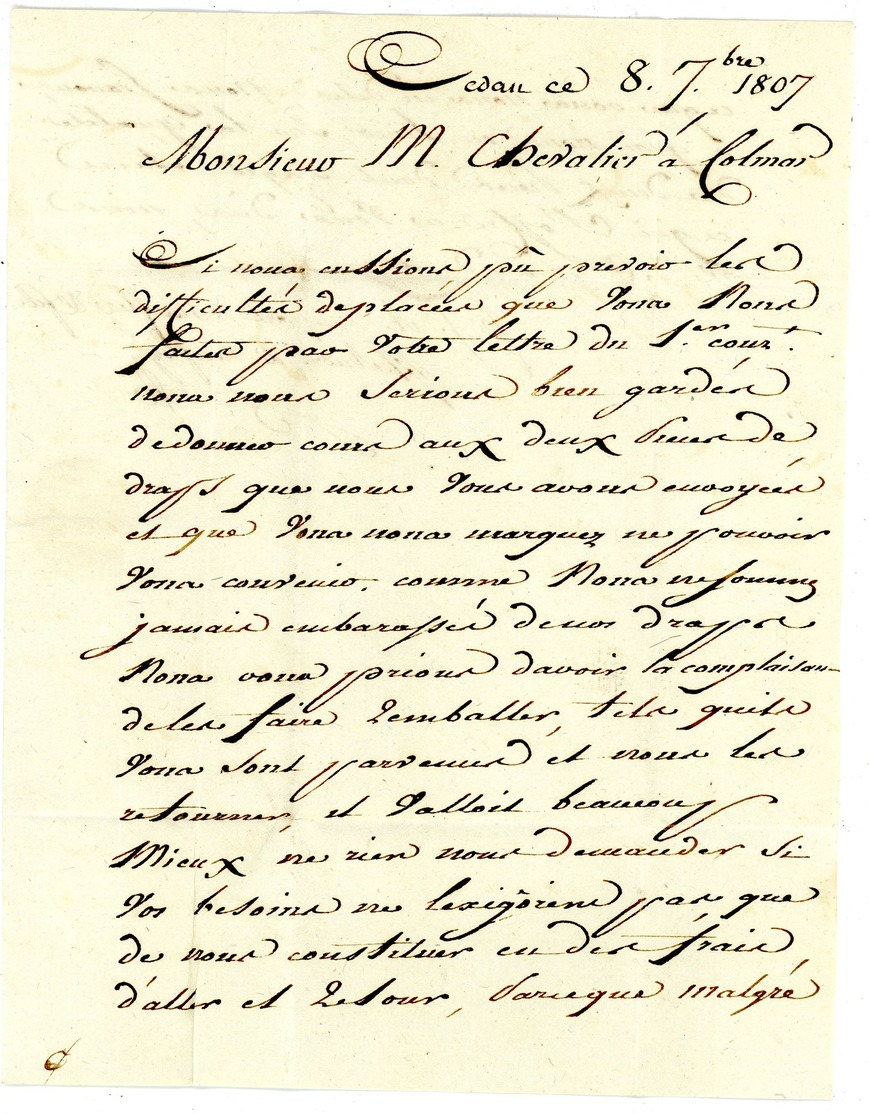 Sedan ce 8. 7.bre 1807
Monsieur M. Chevalier à Colmar
Si nous eussions pû prevoir les
difficultés deplacées que Vous Nous
faites par Votre lettre du 1.er cour.t
nous nous serions bien gardés
dedonner cours aux deux Pieces de
draps que nous Vous avons envoyées
et que Vous nous marquez ne pouvoir
Vous convenir. comme Nous ne sommes
jamais embarassés denos draps
Nous vous prions davoir la complaisan-
deles faire Remballer, tels quils
Vous sont parvenus et nous les
retourner, il Valloit beaucoup
Mieux ne rien nous demander si
Vos besoins ne lexigoient pas que
de nous constituer en des frais
d'aller et Retour, Parceque malgré